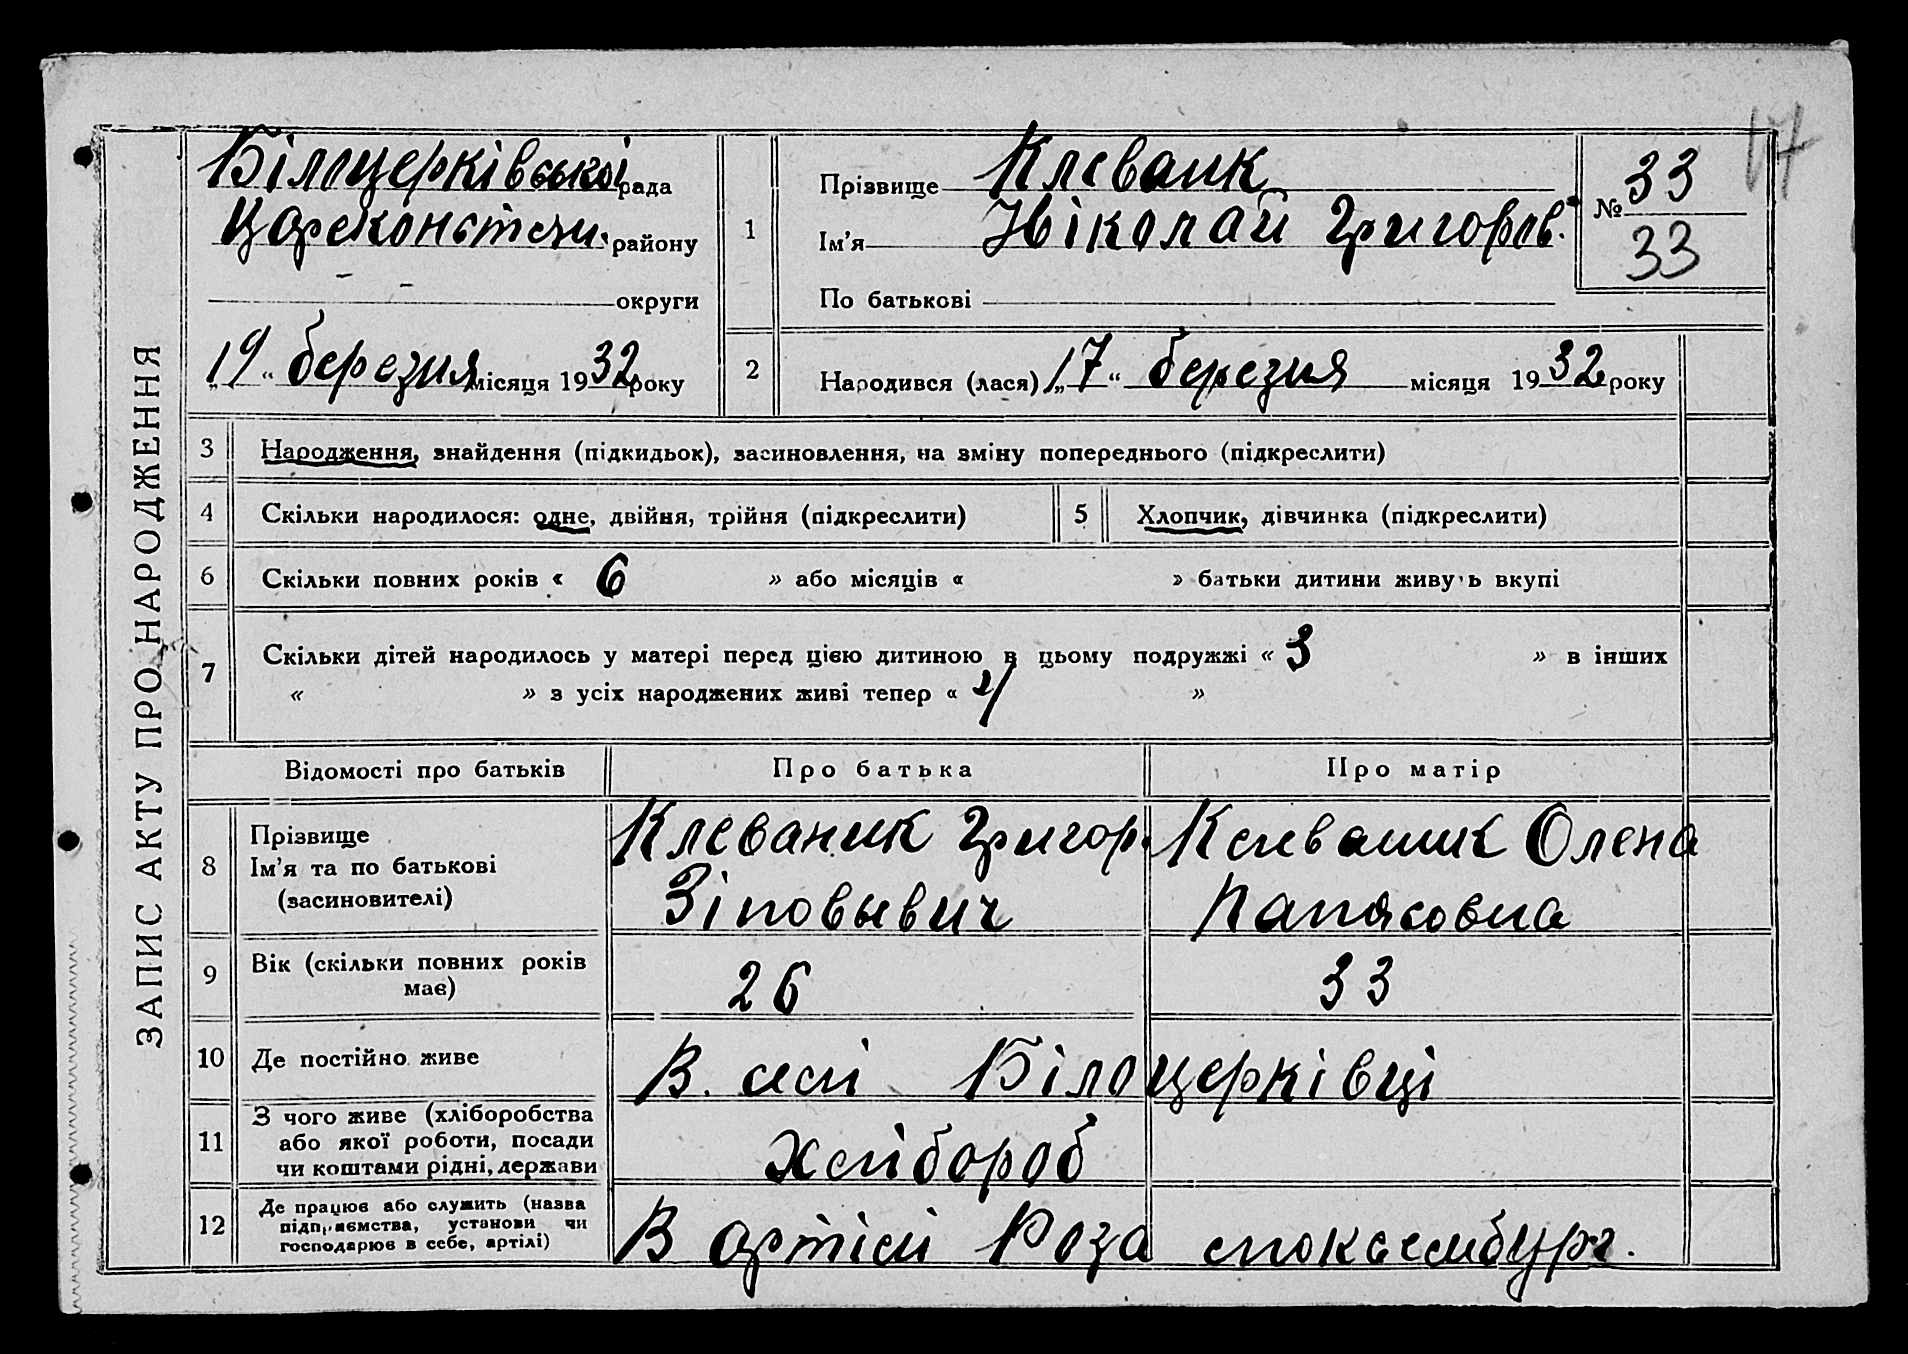 17
ЗАПИС АКТУ ПРО НАРОДЖЕННЯ
Білоцерківської рада
Цареконстян. району
округи
„19“ березня місяця 1932 року
1
Прізвище Клеваник
Ім'я Ніколай Григоров.
По батькові
№ 33
33
2
Народився (лася) „17“ березня місяця 1932 року
3 Народження, знайдення (підкидьок), засиновлення, на зміну попереднього (підкреслити)
4 Скільки народилося: одне, двійня, трійня (підкреслити)
5 Хлопчик, дівчинка (підкреслити)
6 Скільки повних років « 6 » або місяців « » батьки дитини живуть вкупі
7 Скільки дітей народилось у матері перед цією дитиною в цьому подружжі « 3 » в інших
« » з усіх народжених живі тепер « »
Відомості про батьків Про батька Про матір
8 Прізвище
Ім'я та по батькові
(засиновителі)
Клеваник Григор.
Зіновьевич
Клеваник Олена
9 Вік (скільки повних років
має)
26
33
10 Де постійно живе
В. селі Білоцерківці
11 З чого живе (хліборобства
або якої роботи, посади
чи коштами рідні, держави
Хлібороб
12 Де працює або служить (назва
підприємства, установи чи
господарює в себе, артілі)
В артілі Роза